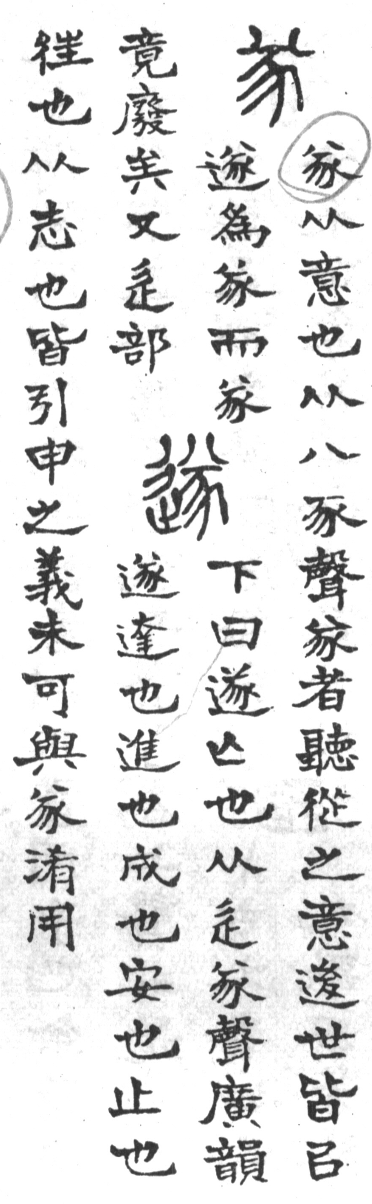 㒸
㒸从意也从八豕聲㒸者聽從之意後世皆㠯
遂為㒸而㒸
竟廢矣又辵部
遂
下曰遂亾也从辵㒸聲廣韻
遂達也進也成也安也止也
徃也从志也皆引申之義未可與㒸淆用